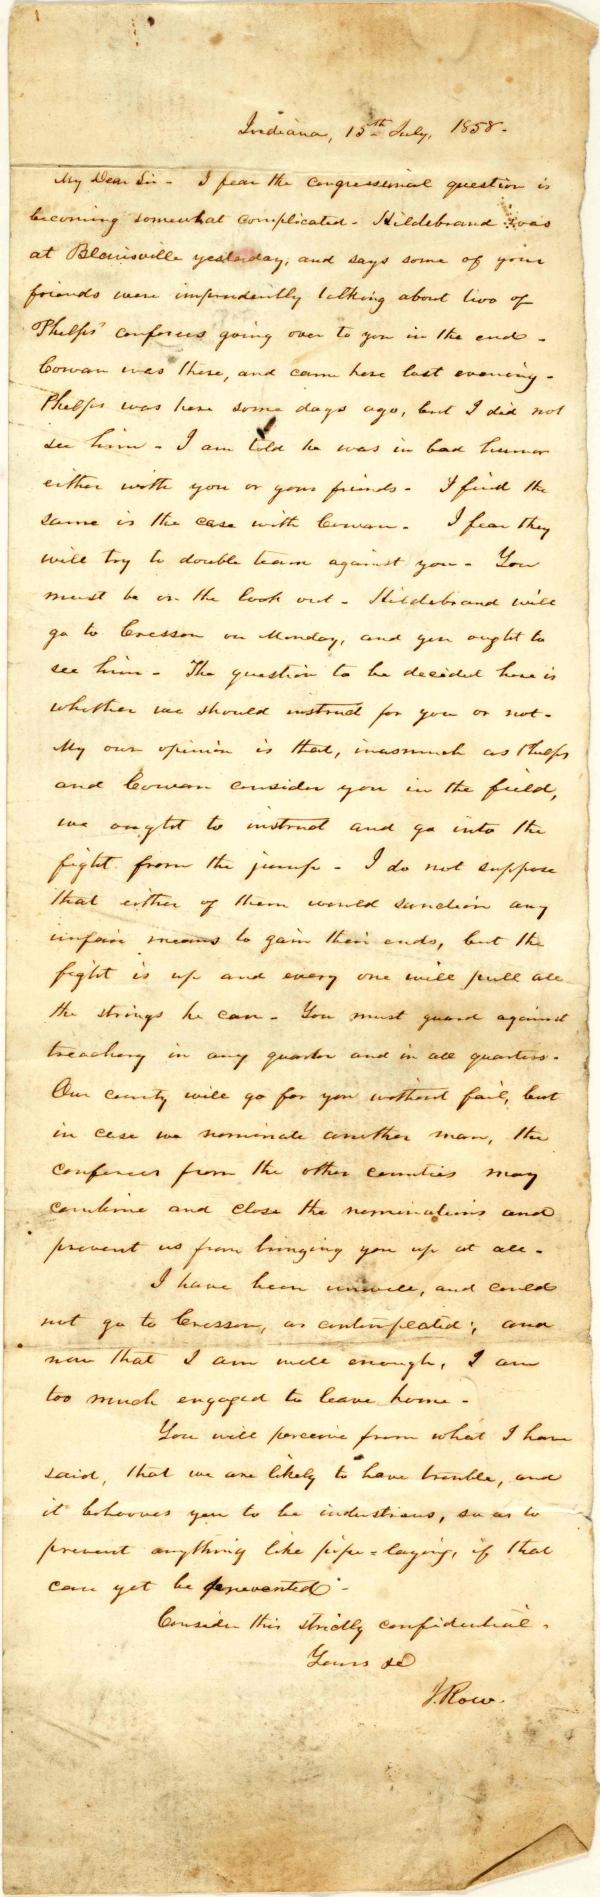 Indiana, 15th July, 1858.
My Dear Sir - I fear the congressional question is
becoming somewhat complicated - Hildebrand was
at Blairsville yesterday, and says some of your
friends were imprudently talking about two of
Phelps' conferees going over to you in the end -
Cowan was there, and came here last evening -
Phelps was here some days ago, but I did not
see him - I am told he was in bad humor
either with you or your friends - I find the
same is the case with Cowan - I fear they
will try to double team against you - You
must be on the look out - Hildebrand will
go to Cresson on Monday, and you ought to
see him - The question to be decided here is
whether we should instruct for you or not -
My own opinion is that, inasmuch as Phelps
and Cowan consider you in the field,
we ought to instruct and go into the
fight from the jump - I do not suppose
that either of them would sanction any
unfair means to gain their ends, but the
fight is up and every one will pull all
the strings he can - You must guard against
treachery in any quarter and in all quarters -
Our county will go for you without fail, but
in case we nominate another man, the
conferees from the other counties may
combine and close the nominations and
prevent us from bringing you up at all -
I have been unwell, and could
not go to Cresson, as contemplated; and
now that I am well enough, I am
too much engaged to leave home -
You will perceive from what I have
said, that we are likely to have trouble, and
it behooves you to be industrious, so as to
prevent anything like pipe=laying, if that
can yet be prevented -
Consider this strictly confidential -
Yours &c
J. Row.